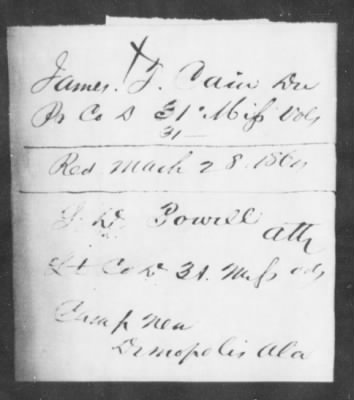 X
James. T. Cain Dec
Pr Co D 31st Miss Vols
31
Red March 28. 186
T. W. Powell
Atty
Lt Co D 31. Miss vols
Camp near
Demopolis Ala